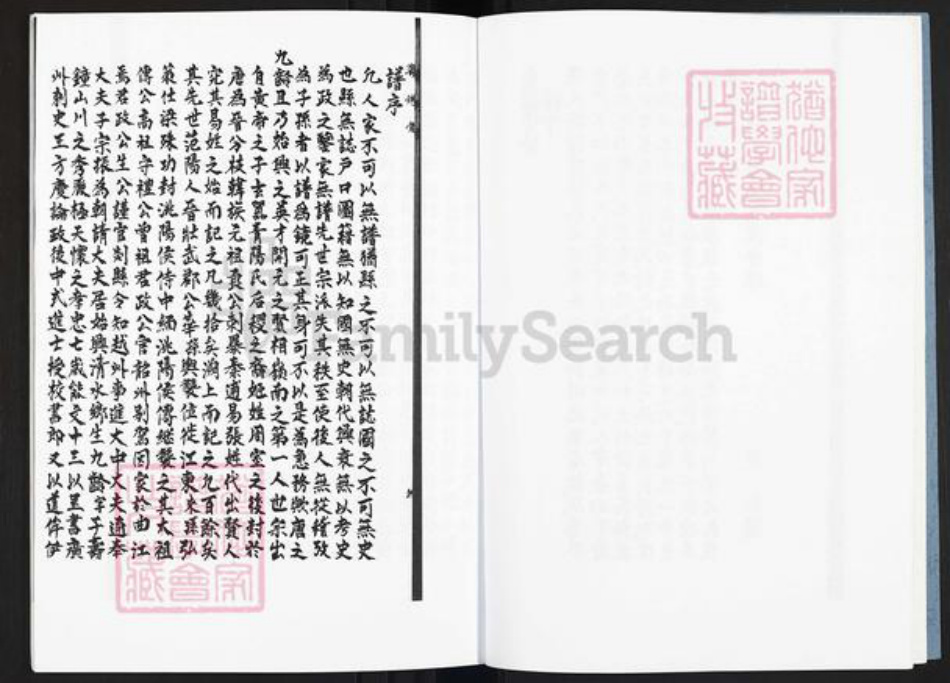 譜序
凡人家不可以無譜猶縣之不可以無誌國之不可無史
也縣無誌戶口圖籍無以知國無史朝代興衰無以考史
為政之鑒家無譜先世宗派失其秩至使後人無從稽攷
為子孫者以譜為鏡可正其身可不以是為急務然唐之
九齡且乃始興之英才開元之賢相嶺南之第一人世系出
自黃帝之子青陽氏后稷之裔姓周室之後封於
唐為晉分枝韓族元祖良公刺暴秦適易張姓代出賢人
究其易姓之始而記之凡幾拾矣溯上而記之九百餘矣
其先世范陽人晉壯武郡公華孫輿襲位徙江東來孫弘
策仕梁殊功封洮陽侯侍中緬洮陽侯傳繼襲之其太祖
傳公高祖守禮公曾祖君政公官韶州別駕因家於曲江
焉君政公生公謹官剡縣令知越州事進大中大夫適奉
大夫子宗振為朝請大夫居始興清水鄉生九齡字子壽
鐘山川之秀麗極天懷之孝忠七歲能文十三以呈書廣
州刺史王方慶論政後中式進士授校書郎又以道侔伊
猶他家
譜學會
收藏
譜學會
收藏
FamilySearch